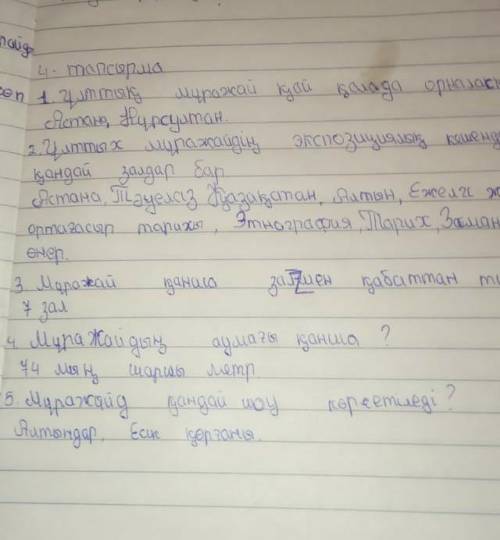 пайд
4. тапсырма
1. Ұлттық мұражай қай қалада орналасқ
Астана, Нұрсултан.
2. Ұлттых мұражайдің экспозициялық кешенд
қандай залдар бар
Астана, Тәуелсіз Қазақатан, Алтын, Ежелгі ж
ортағасыр тарихы, Этнография, Тарих, Заман
өнер.
3 Мұражай қанша залмен қабаттан т
7 зал
4. Мұражайдың аумағы қанша?
74 мың шаршы метр
5. Мұражайд қандай шоу көрсетіледі?
Алтындар, Есік қорғаны.